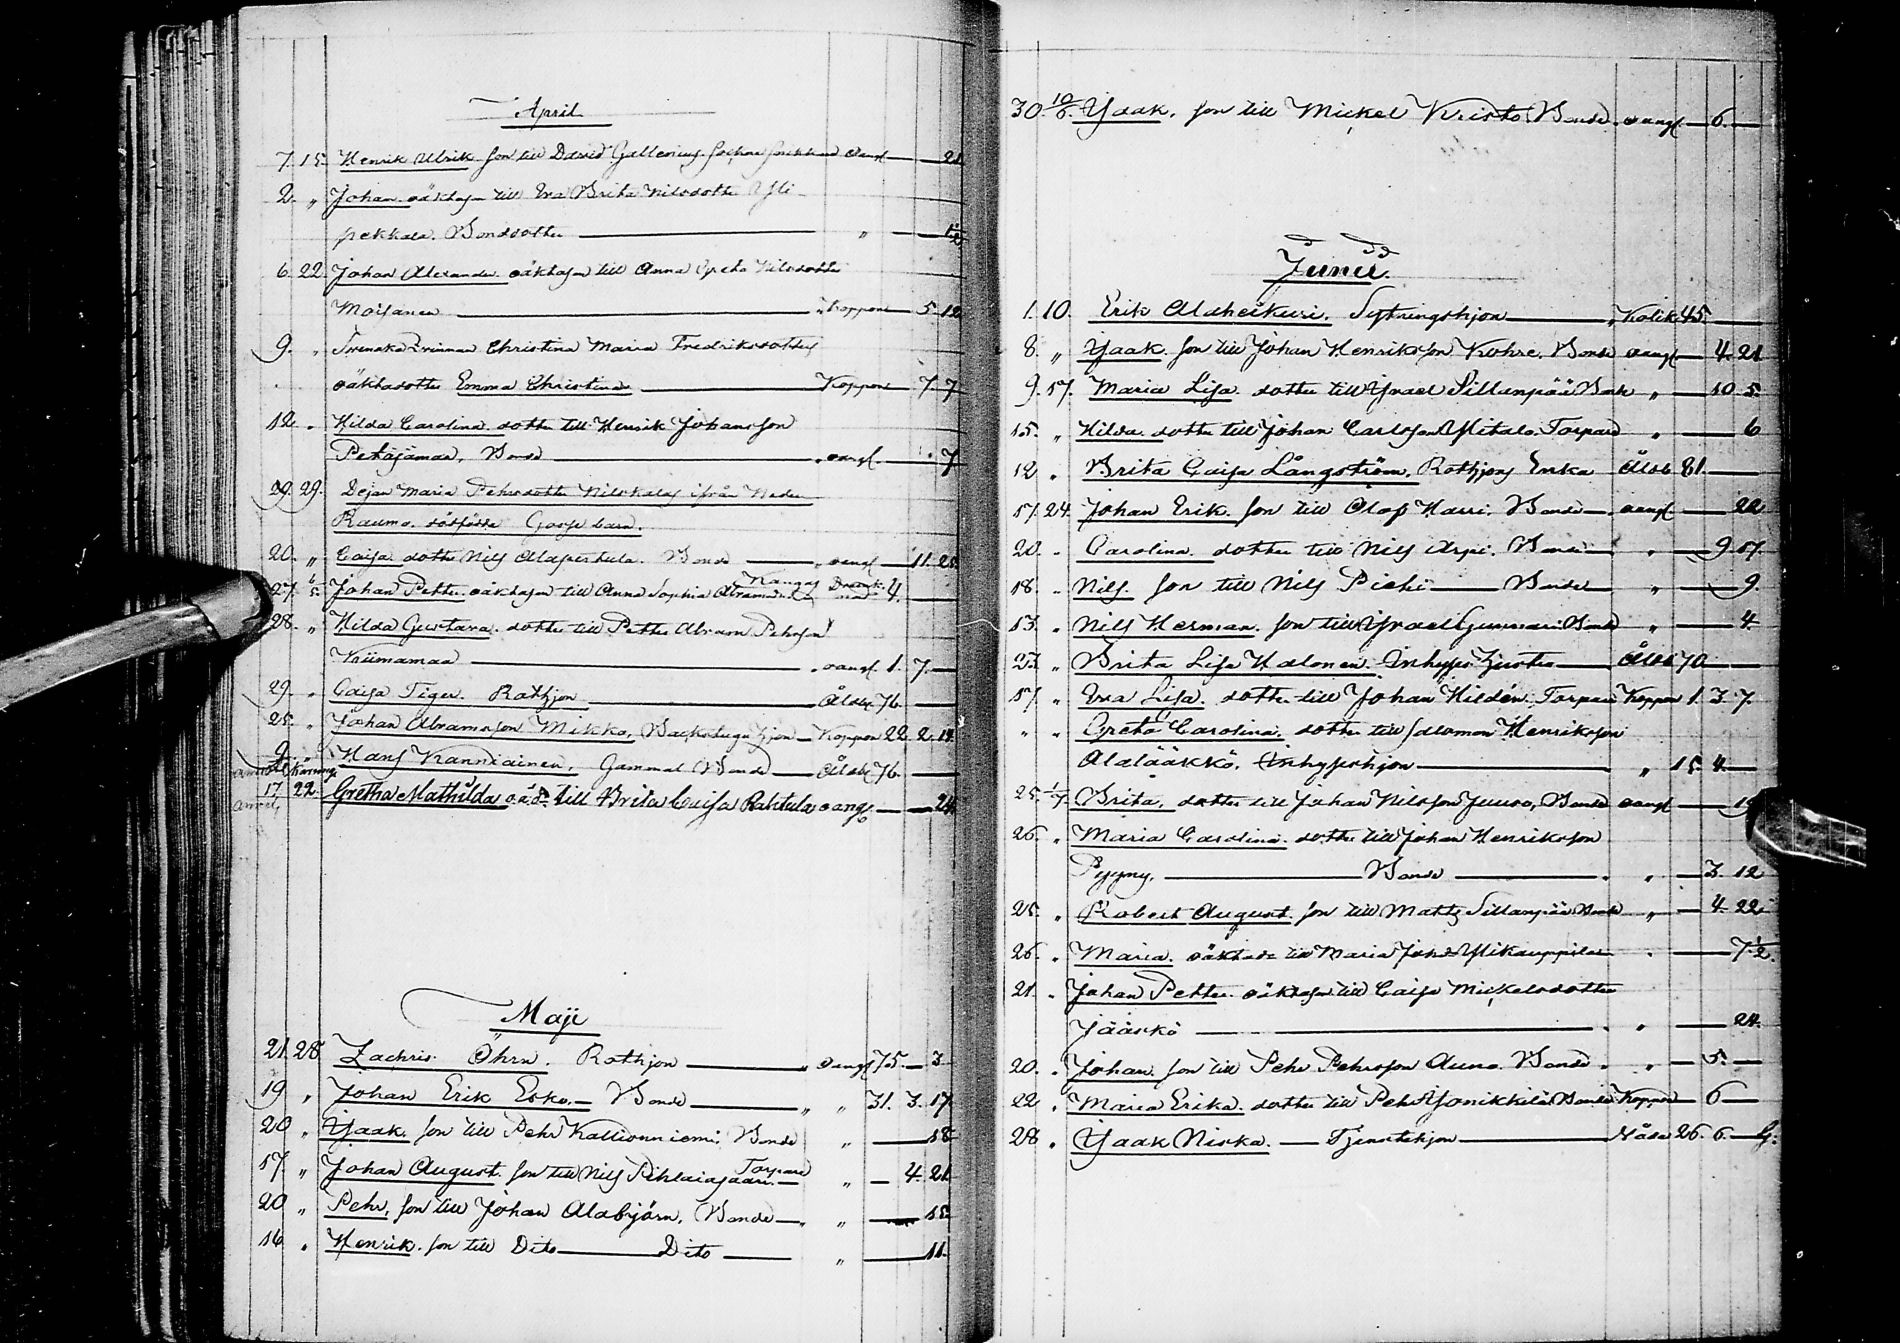 April
7. 15. Henrik Ulrik son till David Gallenius oangf — 21
2. „ Johan oäkta son till Eva Brita Nilsdotter Yli-
pekkala. Bondedotter — „ —
6. 22. Johan Alexander oäkta son till Anna Greta Nilsdotter
Moisanen — Koppor 5. 12
9. „ Svenska qvinnan Christina Maria Fredriksdotters
oäktadotter Emma Christina — Koppor 7. 7
12. „ Hilda Carolina dotter till Henrik Johansson
Petäjämaa, Bonde — oangf — 7
29. 29. Dejan Maria Pehrsdotter Nilskalas ifrån Neder
Raumo. dödfödde Gosse barn.
20. „ Caisa dotter Nils Alapertula. Bonde — oangf — 11. 25
27. 6/5. Johan Petter oäkta son till Anna Sophia Abramsd. Kangas 4. —
28. „ Hilda Gustava dotter till Petter Abram Pehrson
Kiimamaa — oangf 1. 7. —
29. „ Caisa Tiger. Rothjon — Åldr. 76. —
25. „ Johan Abramsson Mikko, Backstuguhjon — Koppor 22. 2. 14.
9. Hans Kanniainen. Gammal Bonde — Åldr. 76. —
17. 22. Gretha Mathilda o.ä.d. till Brita Caisa Rahtula oangf. — 24
Maji
21. 28. Zachris Öhrn. Rothjon — oangf 75. — 3
19. „ Johan Erik Esko. — Bonde — „ 31. 3. 17
20. „ Yaak. son till Pehr Kallionniemi, Bonde „ — 18
17. „ Johan August. son till Nils Pihlaiasaari. Torpare „ — 4. 21
20. „ Pehr, son till Johan Alabjörn. Bonde — „ — 15
16. „ Henrik. son till Dito — Dito — „ — 11.
30. 10/6. Yaak. son till Mickel Kristo. Bonde. oangf — 6. —
Junii.
1. 10. Erik Alaheikuri. Sytningshjon — Kolik 45. —
8. „ Yaak. son till Johan Henriksson Kohre. Bonde oangf — 4. 21
9. 17. Maria Lisa. dotter till Yrael Sillanpää Bonde „ — 10. 5.
15. „ Hilda. dotter till Johan Carlsson Ylitalo. Torpare „ — 6
12. „ Brita Caisa Långström. Rothjons Enka Åldr. 81. —
17. 24. Johan Erik. son till Olof Harri. Bonde — oangf — 22
20. „ Carolina. dotter till Nils Arpi. Bonde — „ — 9. 17.
18. „ Nils. son till Nils Pichi — Bonde „ — 9.
13. „ Nils Herman. son till Yrael Gunnari Bonde „ — 4.
23. „ Brita Lisa Halonen. Inhyses Hustru — Åldr 70 —
17. „ Eva Lisa. dotter till Johan Hildén. Torpare Koppor 1. 3. 7.
„ „ Greta Carolina. dotter till Salomon Henriksson
Alalääkkö. Inhyseshjon — „ 15. 4. —
25. 1/7. Brita, dotter till Johan Nilsson Juuso, Bonde oangf —
26. „ Maria Carolina. dotter till Johan Henriksson
Pyyny. — Bonde — „ — 3. 12
25. „ Robert August. son till Matts Sillanpää Bonde „ — 4. 22
26. „ Maria. oäktade till Maria Ylikauppila „ — 7 1/2.
21. „ Johan Petter. oäkta son till Caisa Mickelsdotter
Jääskö — „ — 24.
20. „ Johan. son till Pehr Pehrsson Auno. Bonde. „ — 5. —
22. „ Maria Erika. dotter till Pehr Ylonikkilä Bonde Koppor — 6 —
28. „ Yaak Niska. — Tjenstehjon — 26. 6. — G.